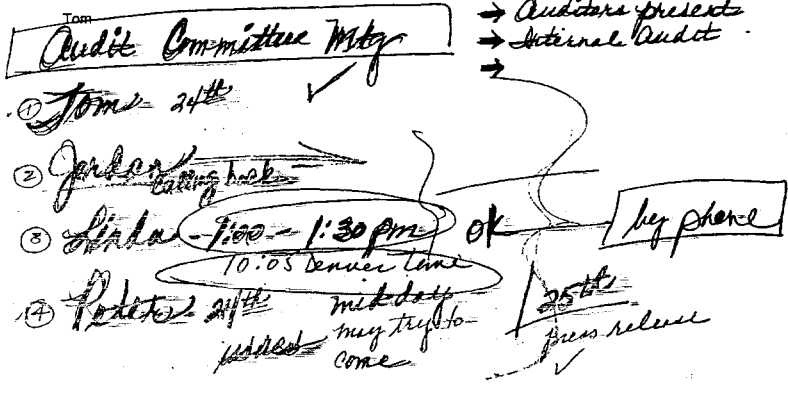 Tom
Audit Committee Mtg
→ Auditors present
→ Internal Audit
→
① Tom - 24th ✓
② Jordan
Calling back
③ Linda - 1:00 - 1:30 pm OK by phone
10:05 Denver time
④ 24th mid day
may try to
come
25th
press release ✓